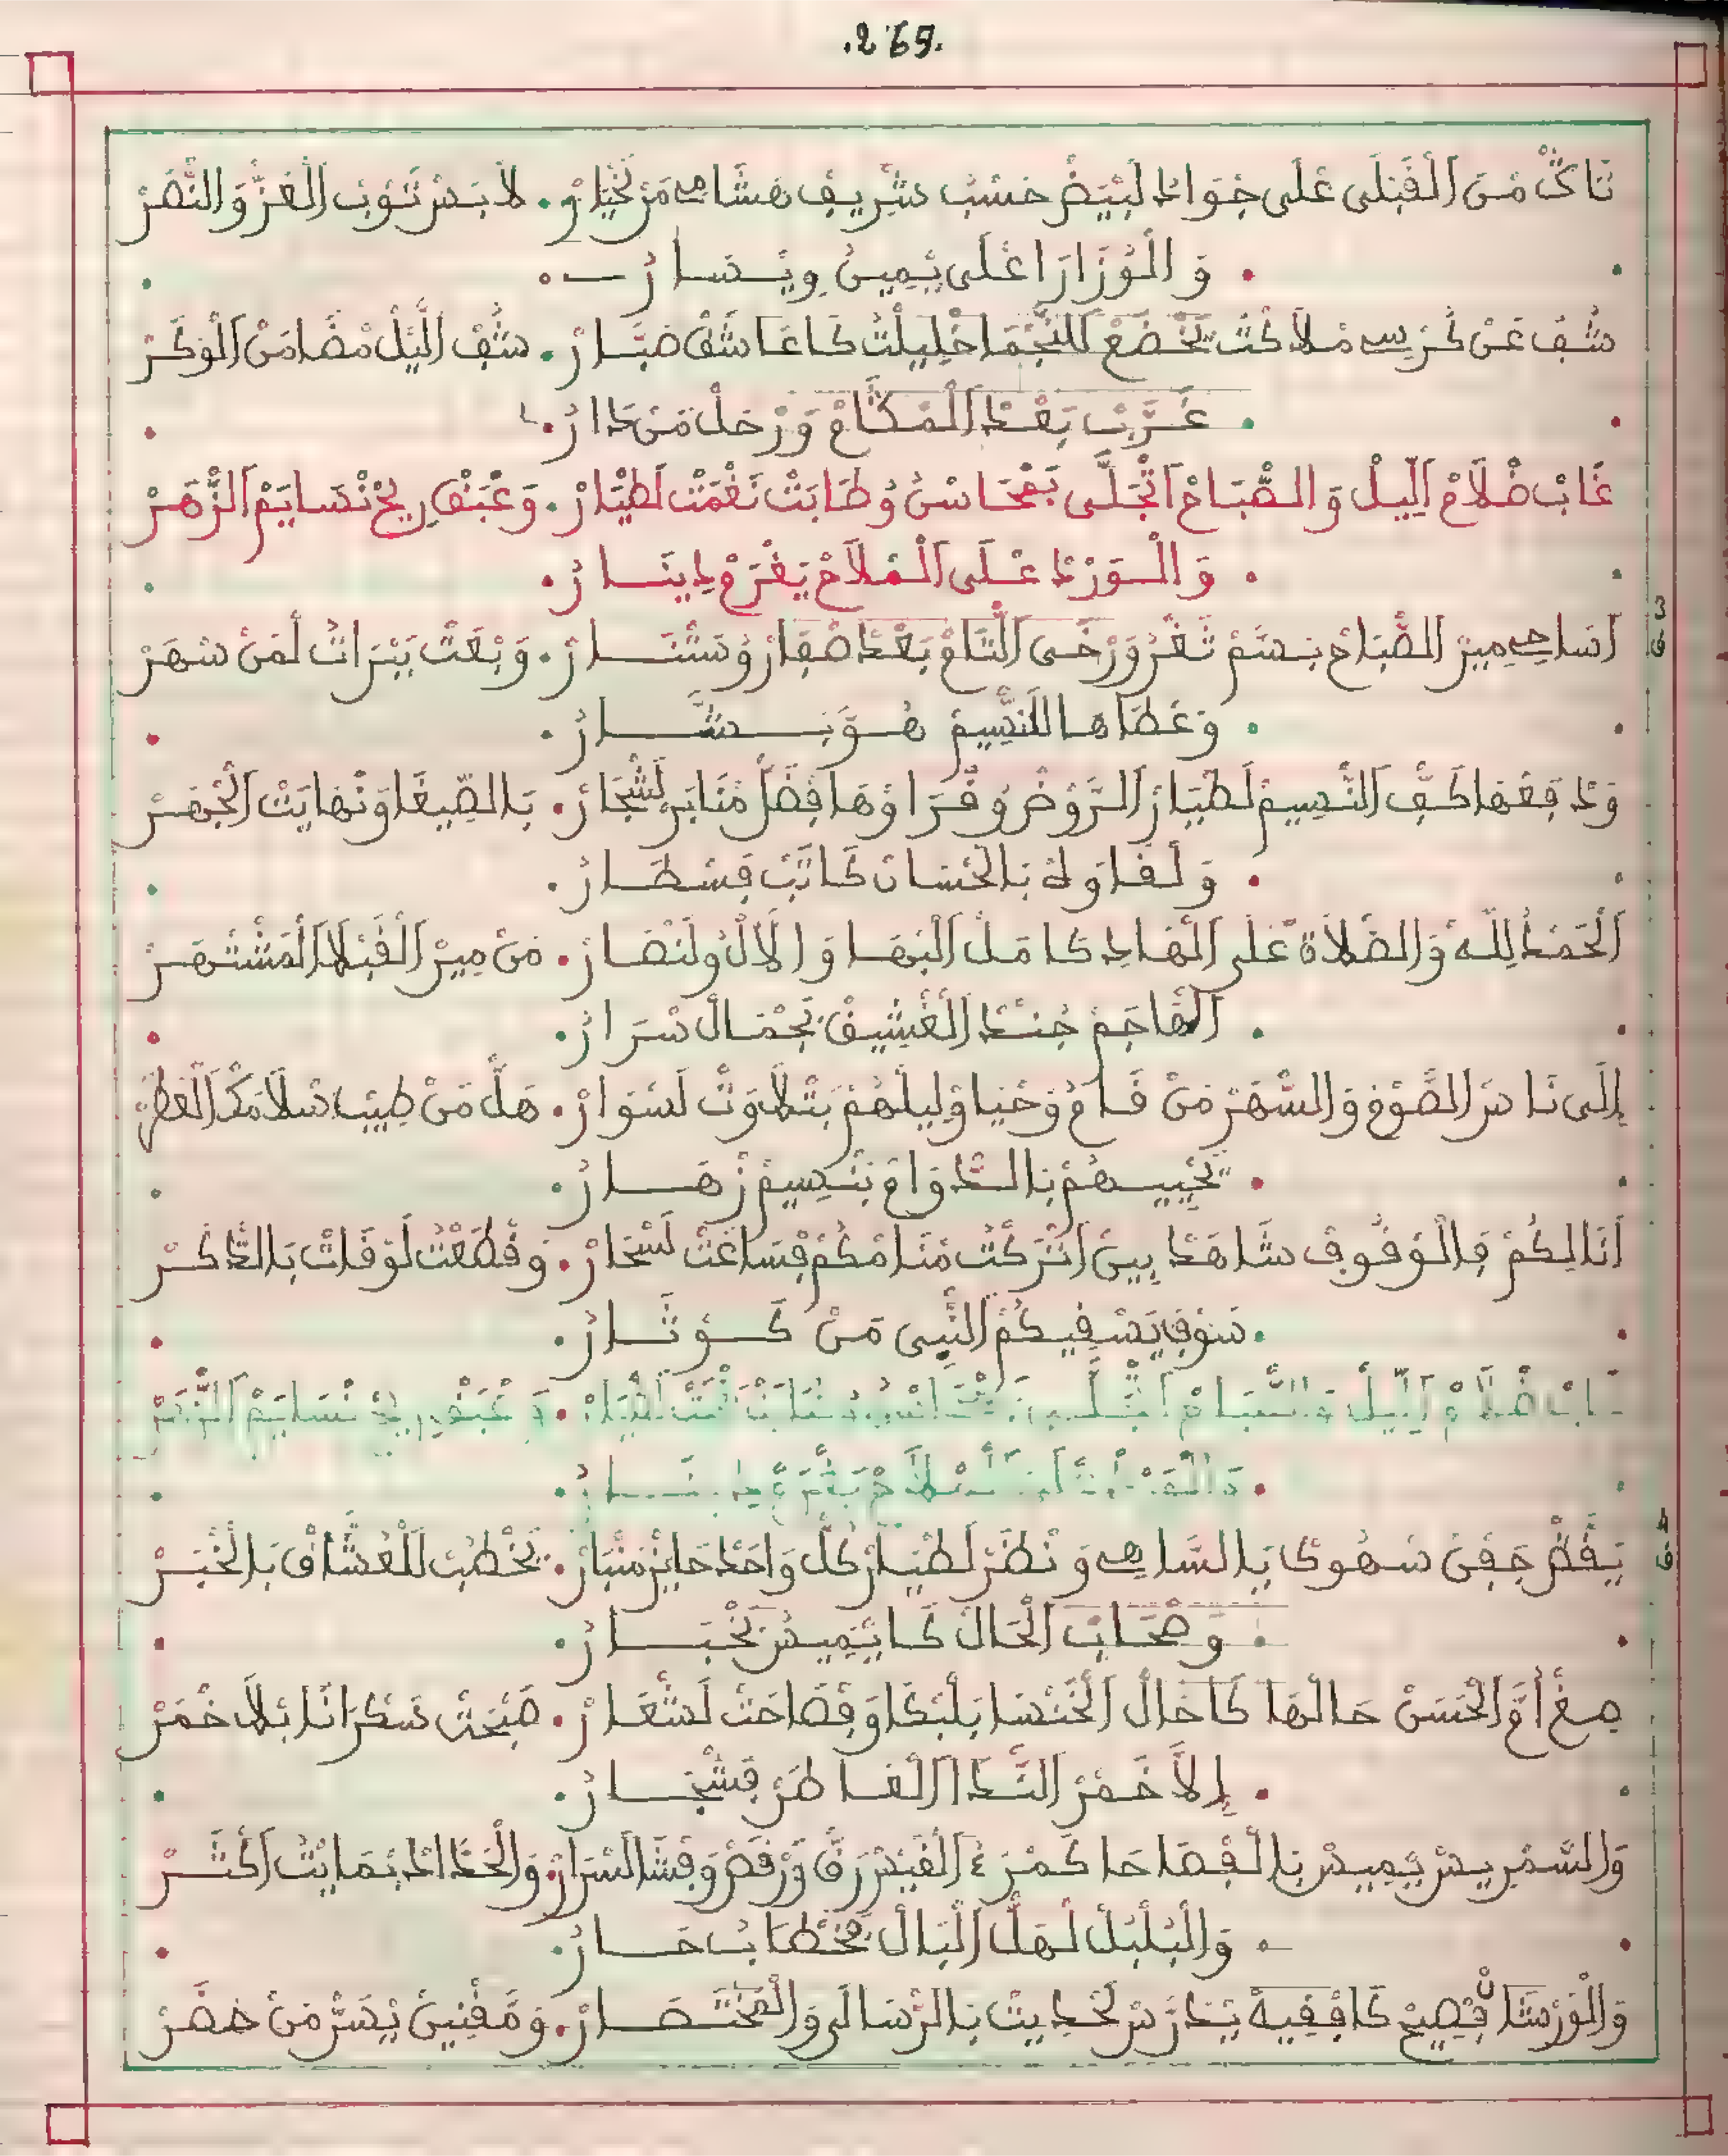 .269.
تَاكّْ مْنَ الْقَبْلَى عْلَى جْوَادْ لَبْيَضْ حَسْبْ شْرِيفْ هَشَامِي مَنْ خْيَارْ. لاَبَسْ تَوْبْ الْعَزّْ وَالنَّصَرْ
وَالْوُزَارَا عْلَى يْمِينُ وِيْسَارُ
شُفْ عَنْ كُرْسِي مْلاَكْتُ تَخْضَعْ لُ النَّجْمَا خْلِيلْتُ كَا عَاشَقْ صَبَّارْ. شُفْ اللِّيلْ مْضَا مَنْ الْوْكَرْ
غَرَّبْ بَعْدْ الْمْقَامْ وَرْحَلْ مَنْ دَارُ.
غَابْ ظْلاَمْ اللِّيلْ وَالصّْبَاحْ اَتْجَلَّى بَمْحَاسْنُ وُطَابَتْ نَغْمَتْ لَطْيَارْ. وَعْبَقْ رِيحْ نْسَايَمْ الزّْهَرْ
وَالْوَرْدْ عْلَى الْمْلاَحْ يَفْرَحْ دِينَارُ.
3
ق
اَصَاحِي مِيرْ الصّْبَاحْ بْسَمْ ثَغْرُ وَرْخَى التَّاجْ بَعْدْ صْفَارُ وُسَتْنَارْ. وَبْعَتْ بَيْرَاتُ لَمَنْ سْهَرْ
وَعْطَاهَا لَلنّْسِيمْ هُوَ بَشَّارُ.
وَدْفَعْهَا كَفّْ النّْسِيمْ لَطْيَارْ الرَّوْضْ وُقْرَاوْهَا فْضَلّْ مْنَابَرْ لَشْجَارْ. بَالصِّيغَا وَنْهَايَتْ الْجْهَرْ
وَلْغَاوَلُهْ بَالْحْسَانْ كَاتَبْ فَسْطَارُ.
اَلْحَمْدُ لِلَّهْ وَالصّْلاَةْ عْلَى الْهَادِي كَامَلْ الْبْهَا وَالاَلْ وُلَنْصَارْ. مَنْ مِيرْ الْقَبْلاَ الْمَشْتْهَرْ
الْهَاجَمْ جُنْدْ الْغْشِيقْ بَجْمَالْ سْرَارُ.
إِلَى نَاسْ الصَّوْمْ وَالسّْهَرْ مَنْ قَامُ وَحْيَاوْ لِيلْهُمْ بَتْلاَوْتْ لَسْوَارْ. هَلّْ مَنْ طِيبْ سْلاَمَكْ الْعْطَرْ
تَحْيِيهُمْ بَالدّْوَامْ بَنْسِيمْ زْهَارُ.
اَنَا لِكُمْ فَالْوْقُوفْ شَاهَدْ بِينْ اَتْرَكْتْ مْنَامْكُمْ فْسَاعَتْ لَسْحَارْ. وَقْطَعْتْ لَوْقَاتْ بَالذّْكَرْ
سَوْفْ يَسْقِيكُمْ النّْبِي مَنْ كَوْثَارُ.
غَابْ ظْلاَمْ اللِّيلْ وَالصّْبَاحْ اَتْجَلَّى بَمْحَاسْنُ وُطَابَتْ نَغْمَتْ لَطْيَارْ. وَعْبَقْ رِيحْ نْسَايَمْ الزّْهَرْ
وَالْوَرْدْ عْلَى الْمْلاَحْ يَفْرَحْ دِينَارُ.
4
ق
يَقَّظْ جَفْنْ سَهْوَكْ يَالسَّاهِي وَنْظَرْ لَطْيَارْ كُلّْ وَاحَدْ حَايَزْ مَنْبَارْ. يَخْطُبْ لَلْعُشَّاقْ بَالْخْبَرْ
وَصْحَابْ الْحَالْ كَا يْمِيسْ بَخْبَارُ.
صِغْ أُمّْ الْحْسَنْ حَالْهَا كَا حَالْ الْخَنْسَا بَلْبْكَا وَفْصَاحَتْ لَشْعَارْ. صَبْحَتْ سَكْرَانَا بْلاَ خْمَرْ
إِلاَّ خَمْرْ النّْدَا الْقَاطَرْ فَشْجَارُ.
وَالسَّمْرِيسْ يْمِيسْ بَالْفْصَاحَا كَمْرَءْ الْقَيْسْ رَقّْ وَرْقَصْ وَفْشَا لَسْرَارْ. وَالْحَدَّادْ بْمَايْتُ اَكْثَرْ
وَالْبُلْبُلْ لَهْلْ الْبَالْ بَخْطَابُ حَارُ.
وَالْوَرْشَانْ فْصِيحْ كَا فْقِيهْ يْدَرَّسْ لَحْدِيثْ بَالرّْسَالَى وَالْمُخْتَصَارْ. وَمْفَنِّينْ يْسَرّْ مَنْ حْضَرْ